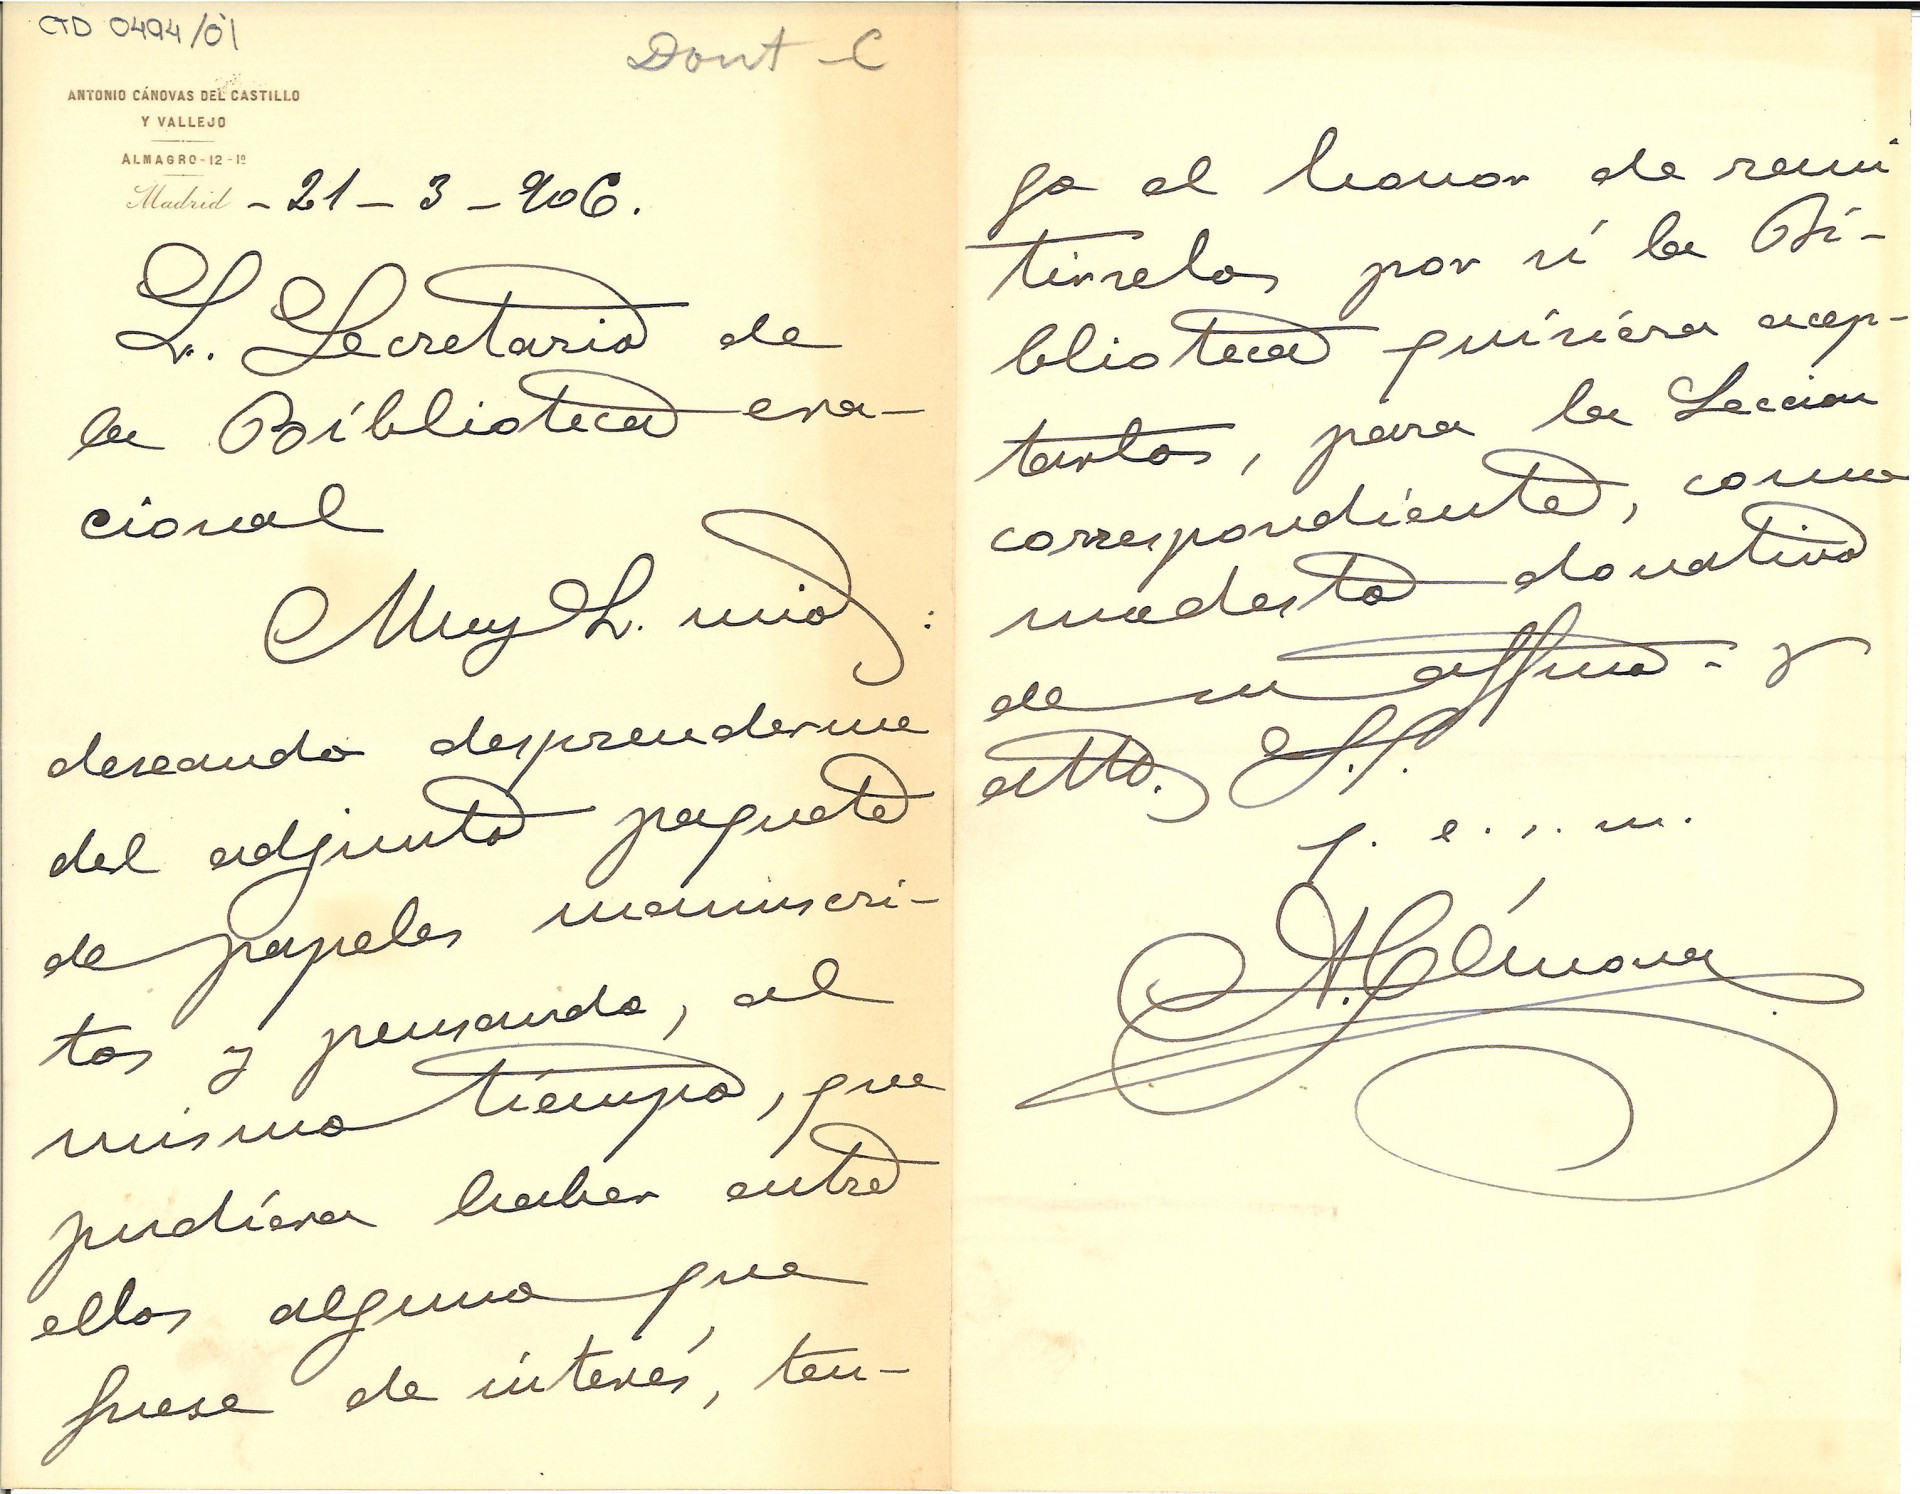 CTD 0494/01
Dont - C
ANTONIO CÁNOVAS DEL CASTILLO
Y VALLEJO
ALMAGRO-12-1º
Madrid - 21 - 3 - 906.
S. Secretario de
la Biblioteca na-
cional
Muy S. mio:
deseando desprenderme
del adjunto paquete
de papeles manuscri-
tos y pensando, al
mismo tiempo, que
pudiera haber entre
ellos alguno que
fuese de interés, ten-
go el honor de remi
tirselos por si la Bi-
blioteca quisiera acep-
tarlos, para la Seccion
correspondiente, como
modesto donativo
de su affmo - y
atto. S.S.
q. e. s. m.
A. Cánovas